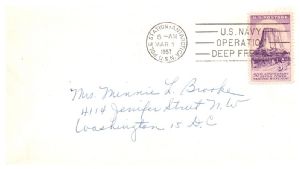 POLE STATION, ANTARCTICA
6-AM
MAR 1
1957
U.S.N.
U.S. NAVY
OPERATION
DEEP FREEZE
U.S. POSTAGE
3¢
Mrs. Minnie L. Brooke
4114 Jenifer Street N.W
Washington 15 D.C